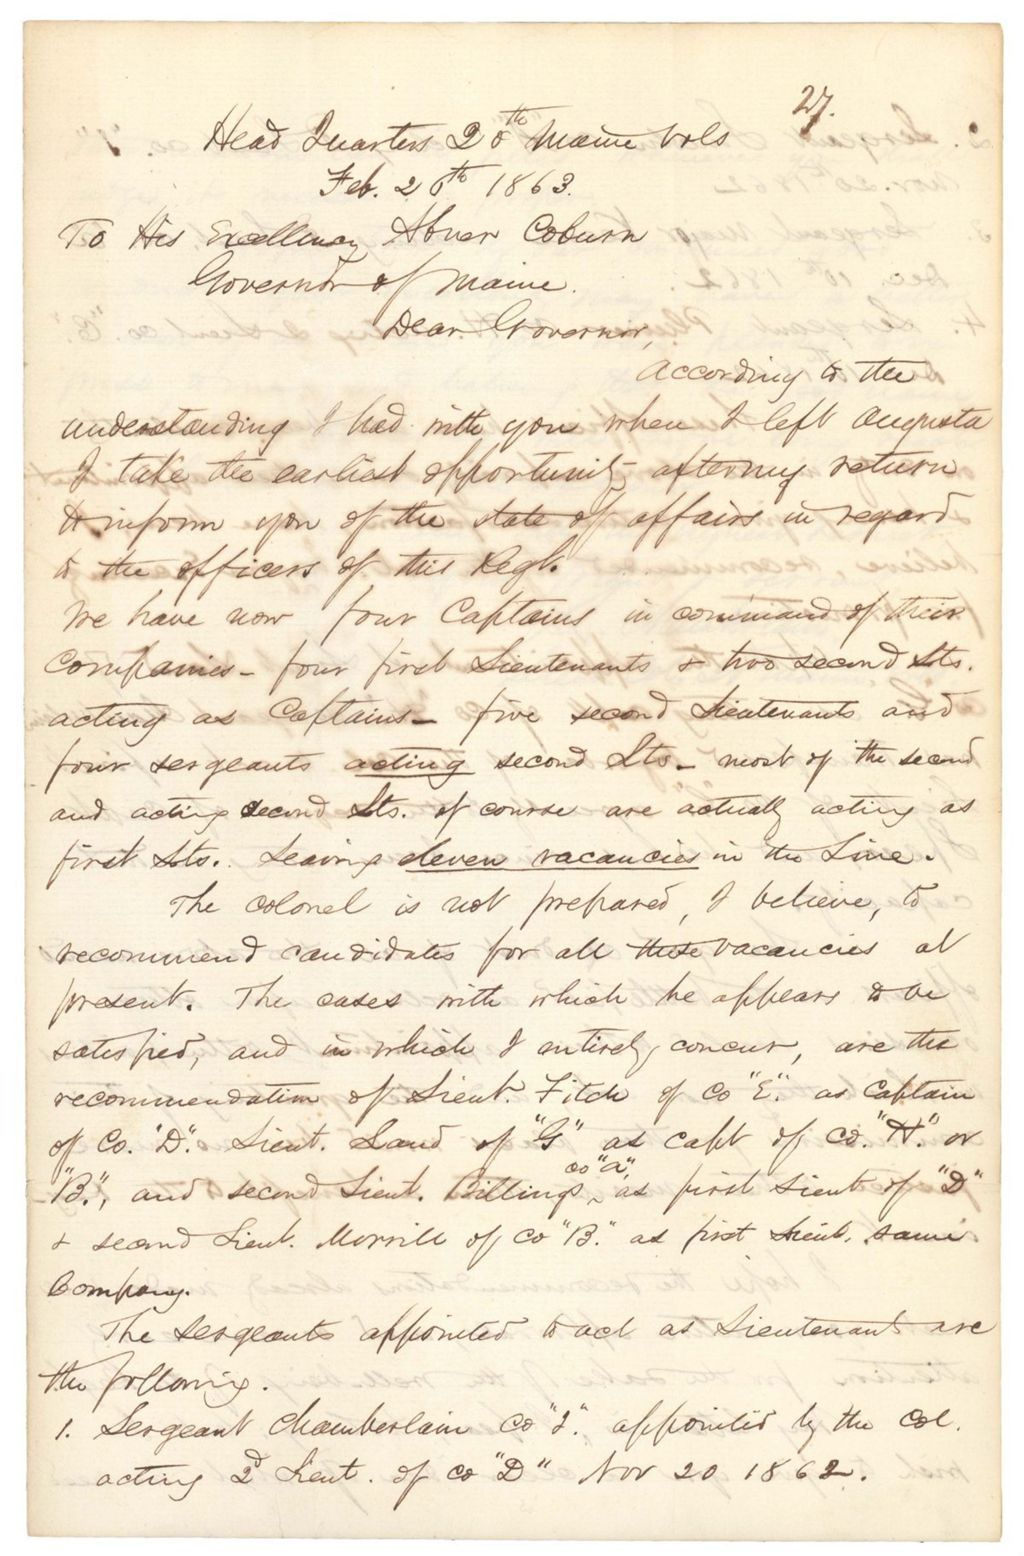 27.
Head Quarters 20th Maine Vols
Feb. 26th 1863.
To His Excellency Abner Coburn
Governor of Maine.
Dear Governor,
According to the
understanding I had with you when I left Augusta
I take the earliest opportunity after my return
to inform you of the state of affairs in regard
to the officers of this Regt.
We have now four Captains in command of their
Companies - four first Lieutenants & two second Lts.
acting as Captains - five second Lieutenants and
four sergeants acting second Lts - most of the second
and acting second Lts. of course are actually acting as
first Lts. Leaving eleven vacancies in the Line.
The colonel is not prepared, I believe, to
recommend candidates for all these vacancies at
present. The cases with which he appears to be
satisfied, and in which I entirely concur, are the
recommendation of Lieut. Fitch of Co "E". as Captain
of Co. "D". Lieut. Land of "G" as capt of co. "H." or
"B.", and second Lieut. Billings co "a", as first Lieut of "D"
& second Lieut. Morrill of co "B." as first Lieut. same
Company.
The Sergeants appointed to act as Lieutenant are
the following.
1. Sergeant Chamberlain Co "I". appointed by the Col.
acting 2d Lieut. of co "D" Nov 20 1862.